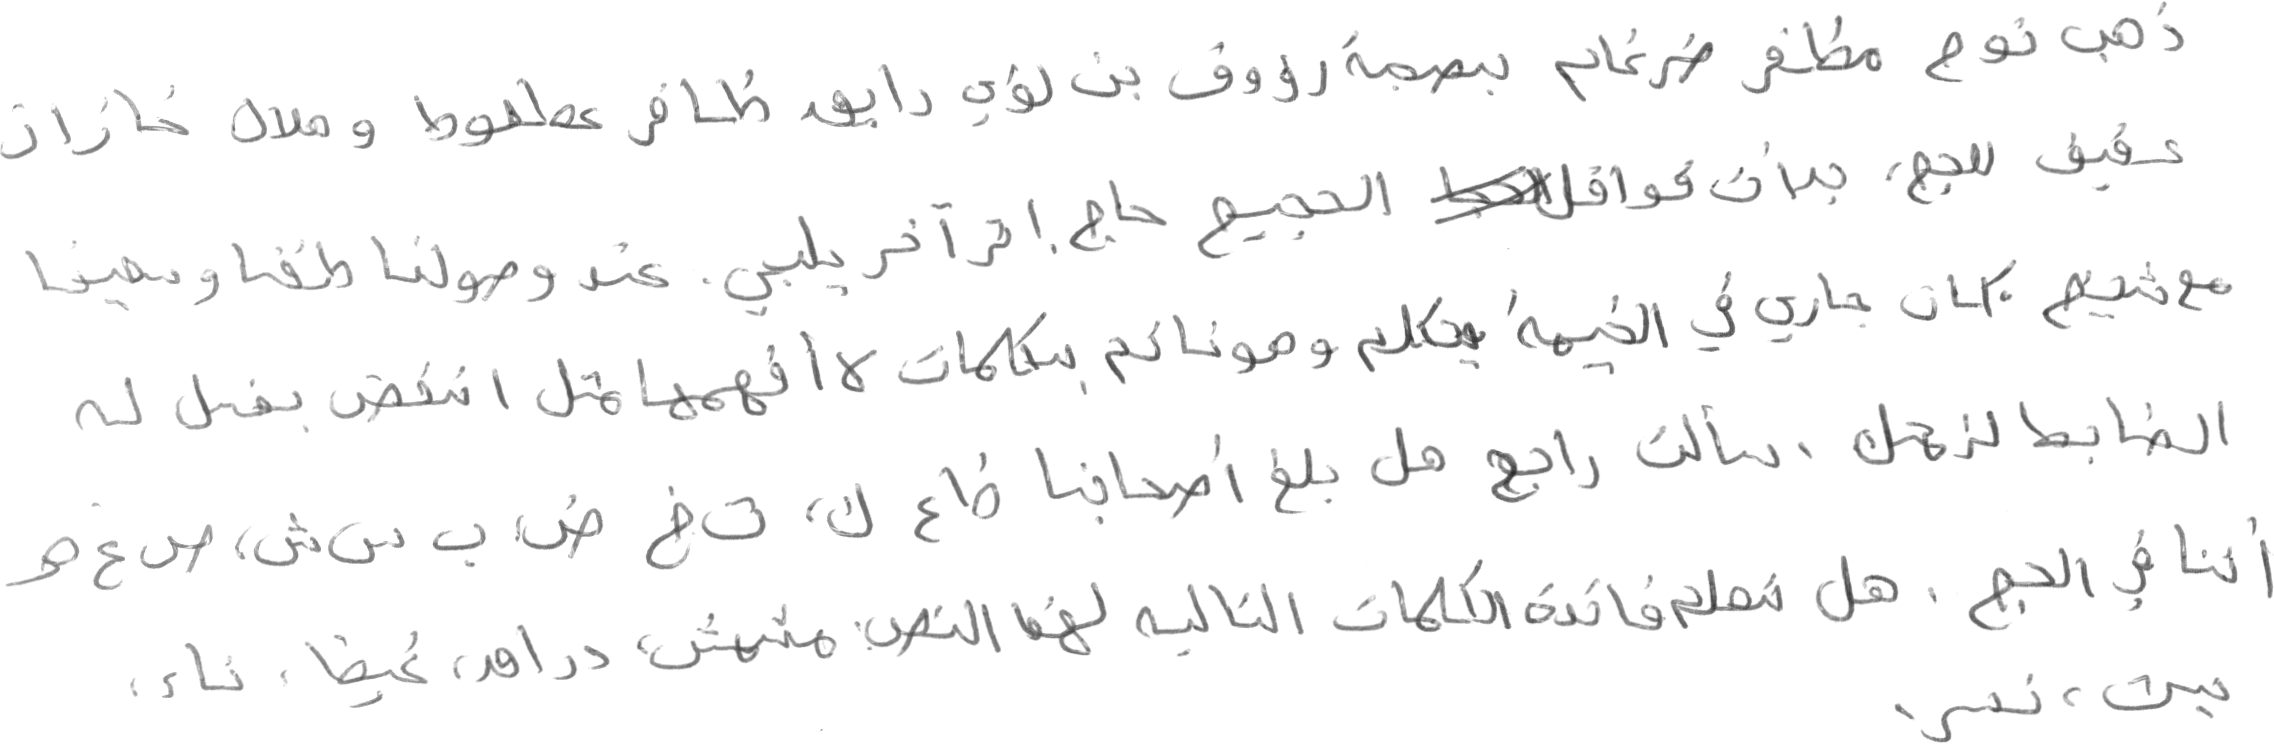 ذهب نوح مظفر ضرغام بصحبة رؤوف بن لؤي رابق ظافر عطعوط وهلال خازان
عفيف للحج، بدأت قوافل الحجيج حاج إثر آخر يلبي. عند وصولنا طفنا وسعينا
مع شيخ كان جاري في الخيمة يتكلم وهو نائم بكلمات لا أفهمها مثل انتفض بغل له
الضابط لزحل. سألت رابح هل بلغ أصحابنا ظ ع ك، ث خ ض، ب س ش، ص غ ه
أننا في الحج. هل تعلم فائدة الكلمات التالية لهذا النص: مشمش، دراهم، غيظ، ناء،
بيت، نسر.